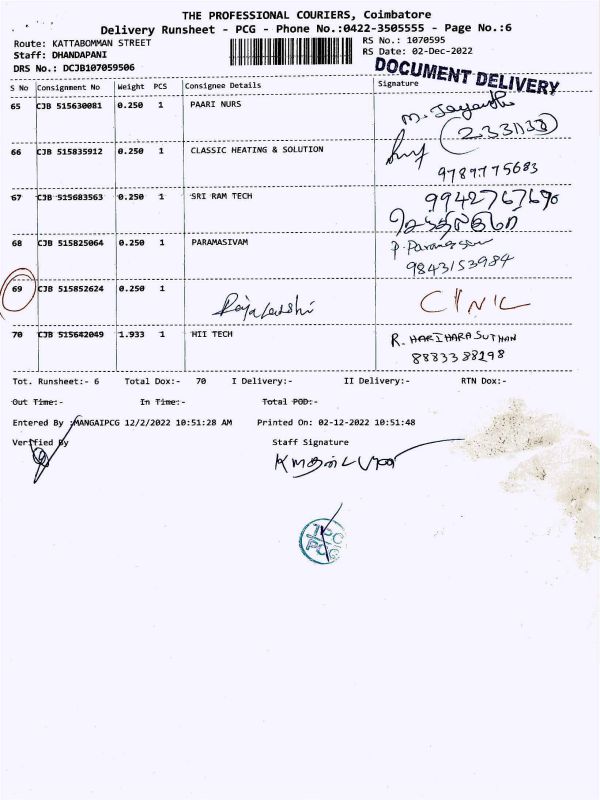 THE PROFESSIONAL COURIERS, Coimbatore
Delivery Runsheet - PCG - Phone No.:0422-3505555 - Page No.:6
Route: KATTABOMMAN STREET
RS No.: 1070595
Staff: DHANDAPANI
RS Date: 02-Dec-2022
DRS No.: DCJB107059506
DOCUMENT DELIVERY
S No Consignment No Weight PCS Consignee Details Signature
65 CJB 515630081 0.250 1 PAARI NURS
M. Jayanthi
2331138
66 CJB 515835912 0.250 1 CLASSIC HEATING & SOLUTION
9789775683
67 CJB 515683563 0.250 1 SRI RAM TECH
9942767690
68 CJB 515825064 0.250 1 PARAMASIVAM
9843153984
69 CJB 515852624 0.250 1
CLINIC
70 CJB 515642049 1.933 1 HII TECH
R. HARIHARA SUTHAN
8883388298
Tot. Runsheet:- 6 Total Dox:- 70 I Delivery:- II Delivery:- RTN Dox:-
Out Time:- In Time:- Total POD:-
Entered By :MANGAIPCG 12/2/2022 10:51:28 AM Printed On: 02-12-2022 10:51:48
Verified By Staff Signature